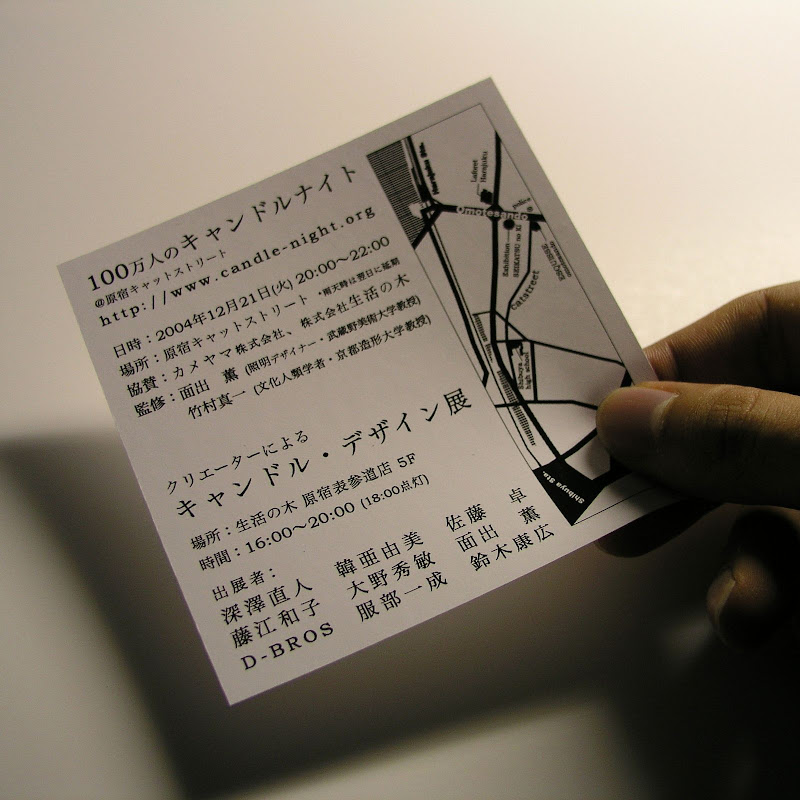 100万人のキャンドルナイト
@原宿キャットストリート
http://www.candle-night.org
日時：2004年12月21日(火) 20:00〜22:00
場所：原宿キャットストリート ・雨天時は翌日に延期
協賛：カメヤマ株式会社、株式会社生活の木
監修：面出 薫 (照明デザイナー・武蔵野美術大学教授)
竹村真一 (文化人類学者・京都造形大学教授)
クリエーターによる
キャンドル・デザイン展
場所：生活の木 原宿表参道店 5F
時間：16:00〜20:00 (18:00点灯)
出展者：
深澤直人 韓亜由美 佐藤 卓
藤江和子 大野秀敏 面出 薫
D-BROS 服部一成 鈴木康広
Harajuku Sta.
Laforet
Harajuku
police
Omotesando
Exhibition
SEIKATSU no KI
ESQUISSE
Catstreet
Shibuya
high school
Shibuya Sta.